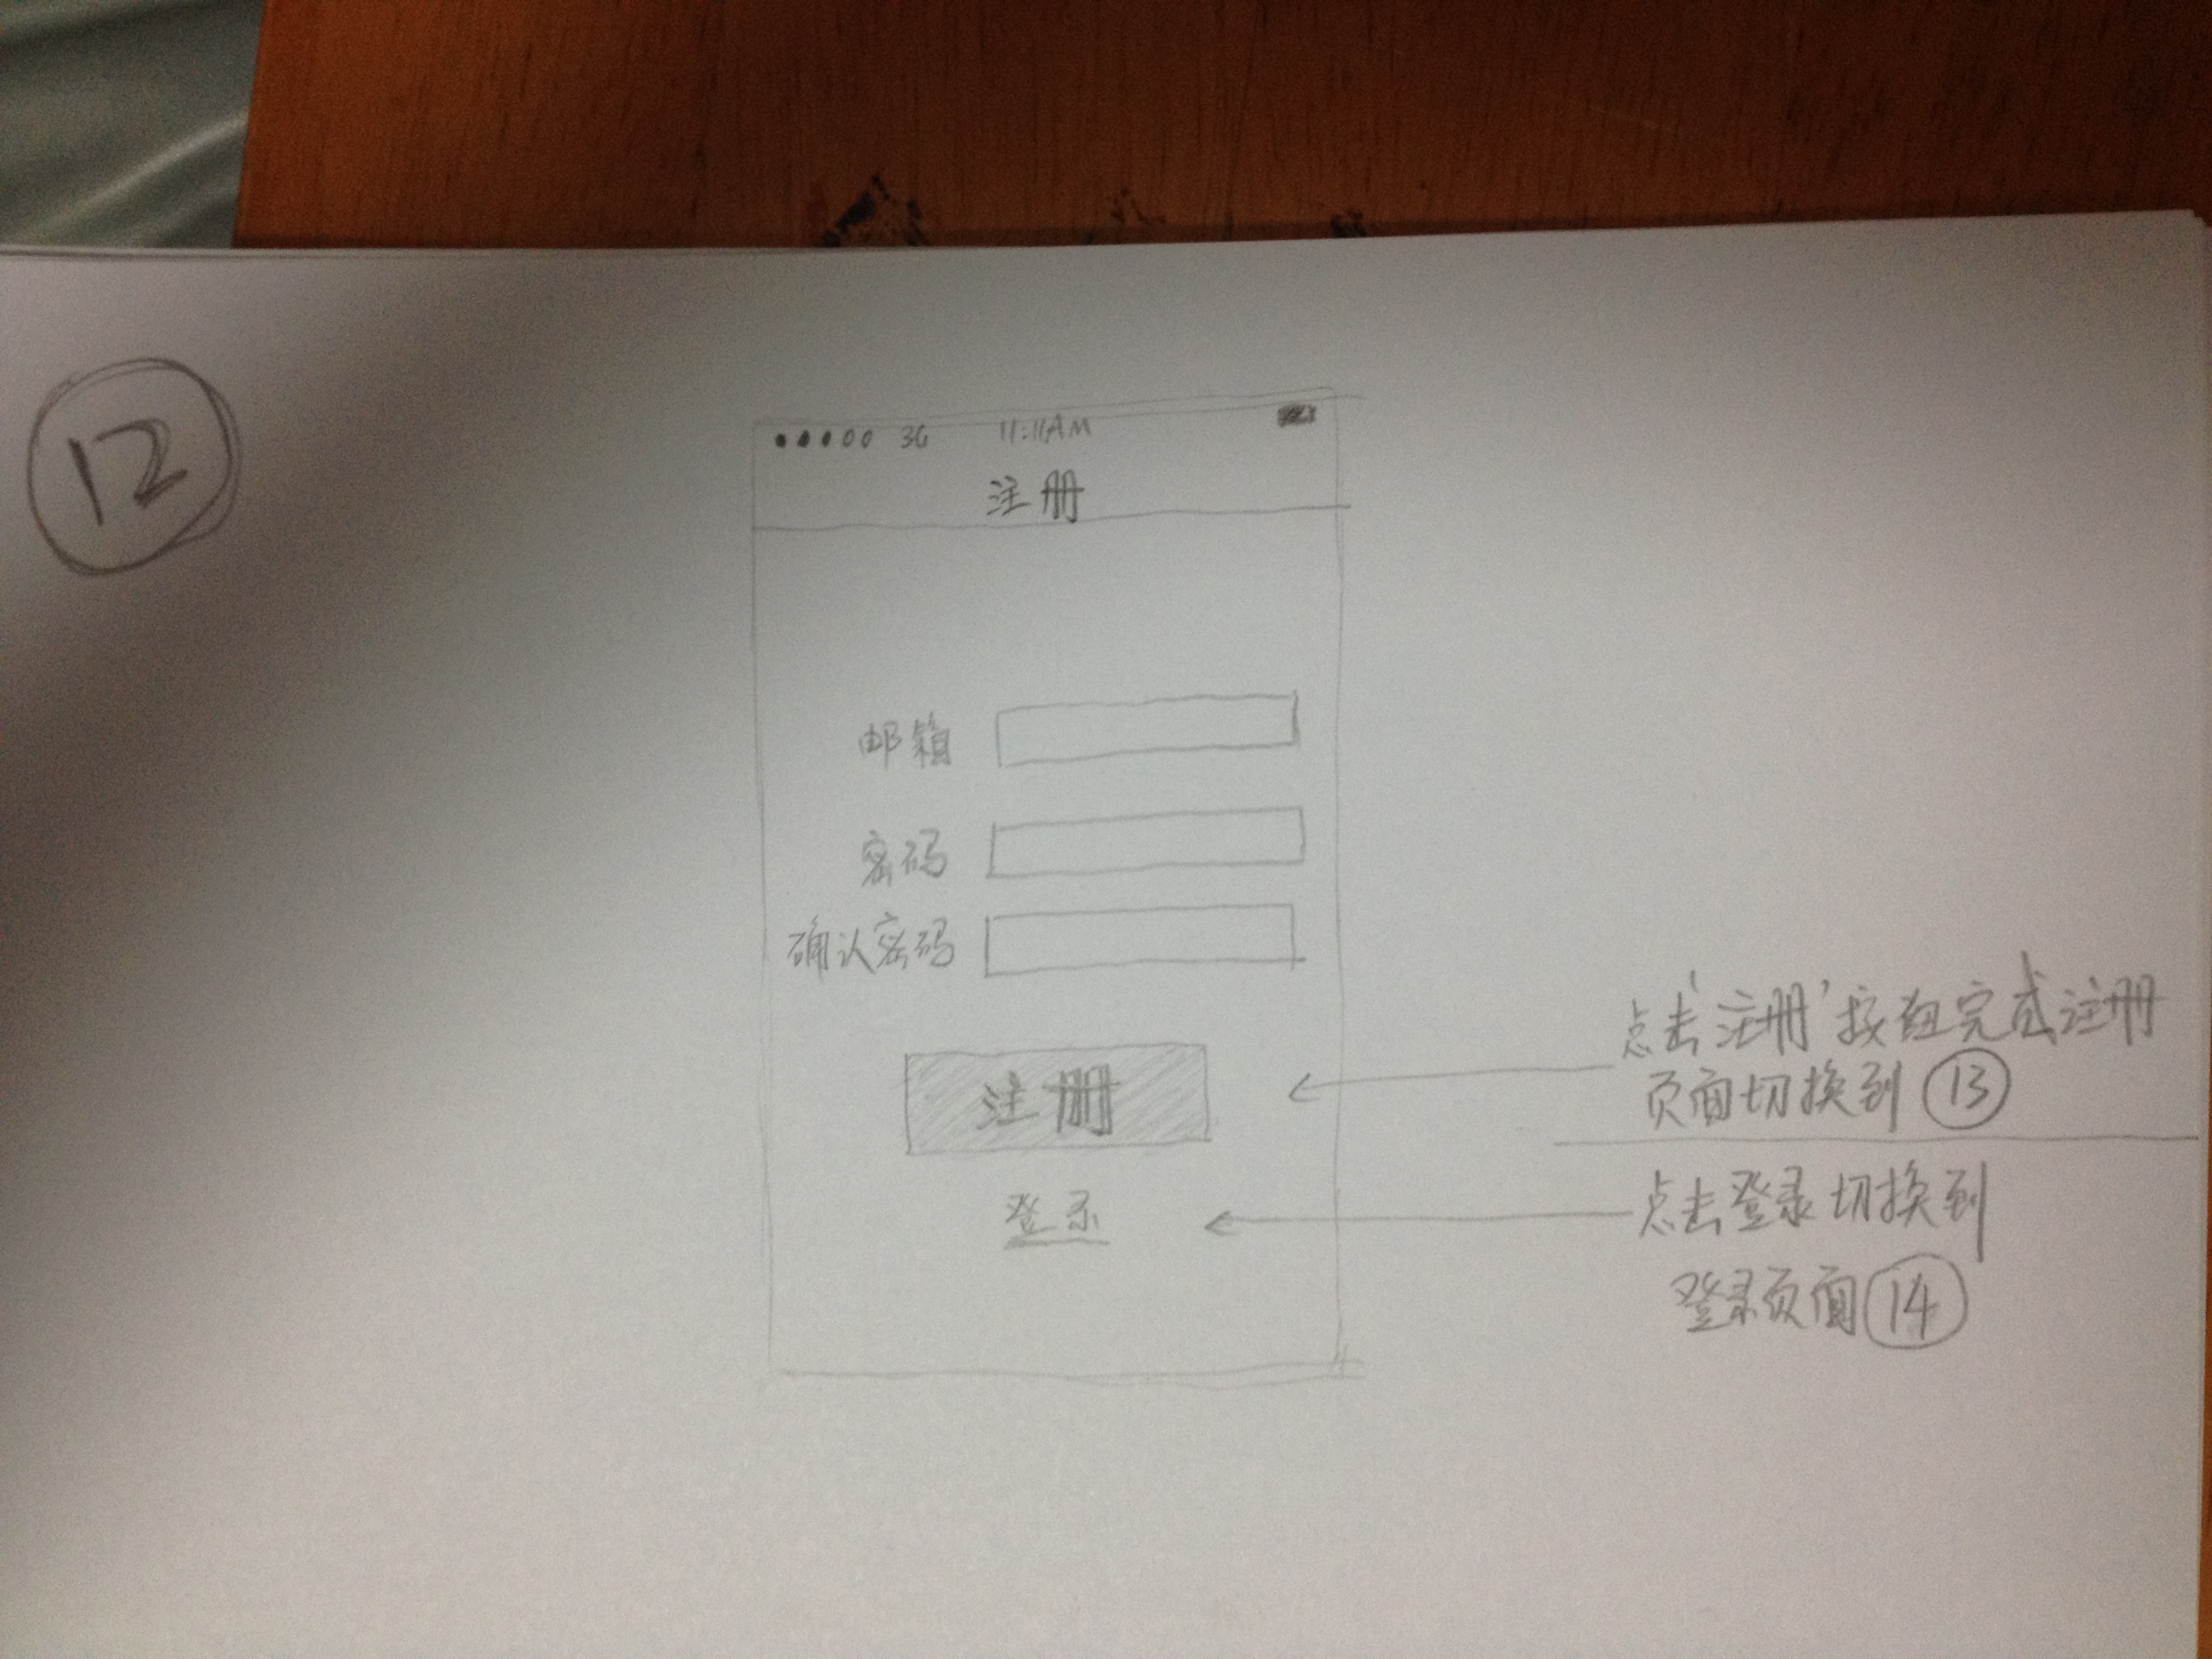 12
●●●○○ 3G 11:11AM
注册
邮箱
密码
确认密码
注册
登录
点击'注册'按钮完成注册
页面切换到 13
点击登录切换到
登录页面 14